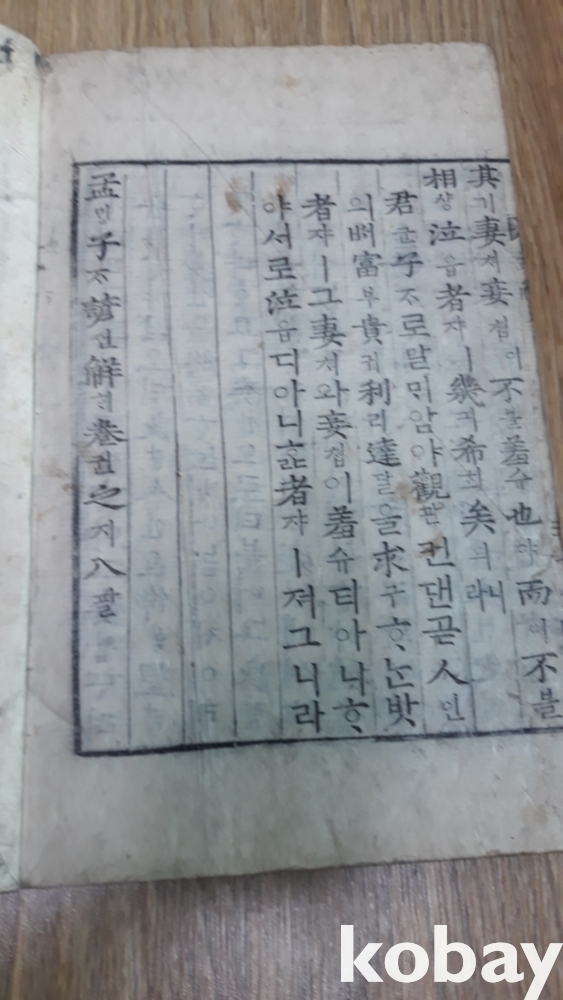 其기妻쳐妾쳡이不블羞슈也야而이不블
相샹泣읍者쟈ㅣ幾긔希희矣의니라
君군子ᄌᆞ로말ᄆᆡ암아觀관컨댄곧人인
의ᄡᅥ富부貴귀利리達달을求구ᄒᆞᄂᆞᆫ밧
者쟈ㅣ그妻쳐와妾쳡이羞슈티아니ᄒᆞ
야서로泣읍디아니ᄒᆞᆯ者쟈ㅣ져그니라
孟ᄆᆡᆼ子ᄌᆞ諺언解ᄒᆡ卷권之지八팔
kobay